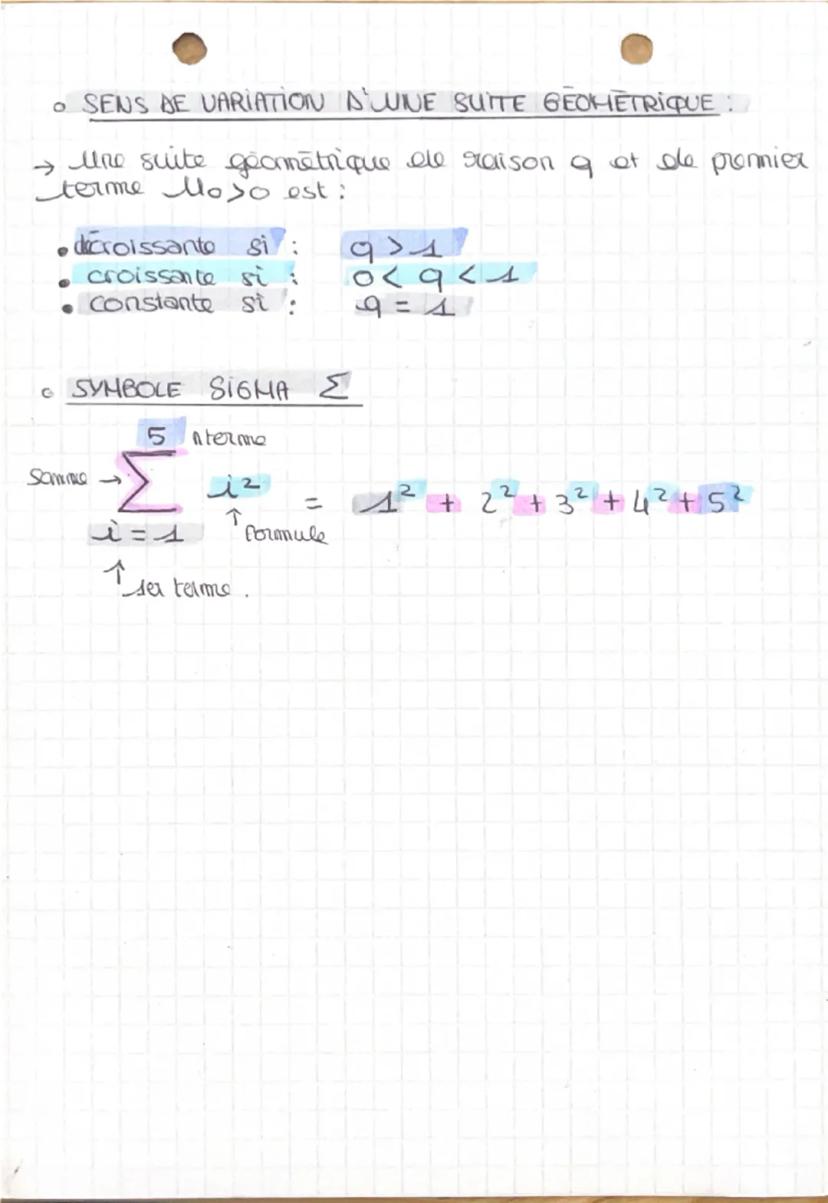 SENS DE VARIATION D'UNE SUITE GÉOMÉTRIQUE :
→ Une suite géométrique de raison q et de premier
terme U₀>0 est :
• décroissante si : q > 1
• croissante si : 0 < q < 1
• constante si : q = 1
SYMBOLE SIGMA Σ
5 n terme
somme → Σ i² = 1² + 2² + 3² + 4² + 5²
i = 1 ↑ formule
↑ 1er terme.